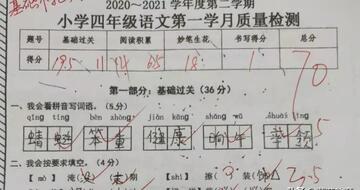 2020～2021学年度第二学期
小学四年级语文第一学月质量检测
题号 基础过关 阅读积累 妙笔生花 书写得分 总分
得分 19.5 11 14 6.5 18 1 70
第一部分：基础过关（36分）
一、我会看拼音写词语。（8分）
qīng tíng bèn zhòng jiàn kāng shǎng wǔ shuài lǐng
蜻蜓 笨重 健康 晌午 率领
二、我会按要求填空。（4分）
【mò】 【shì】 擦（ 装（